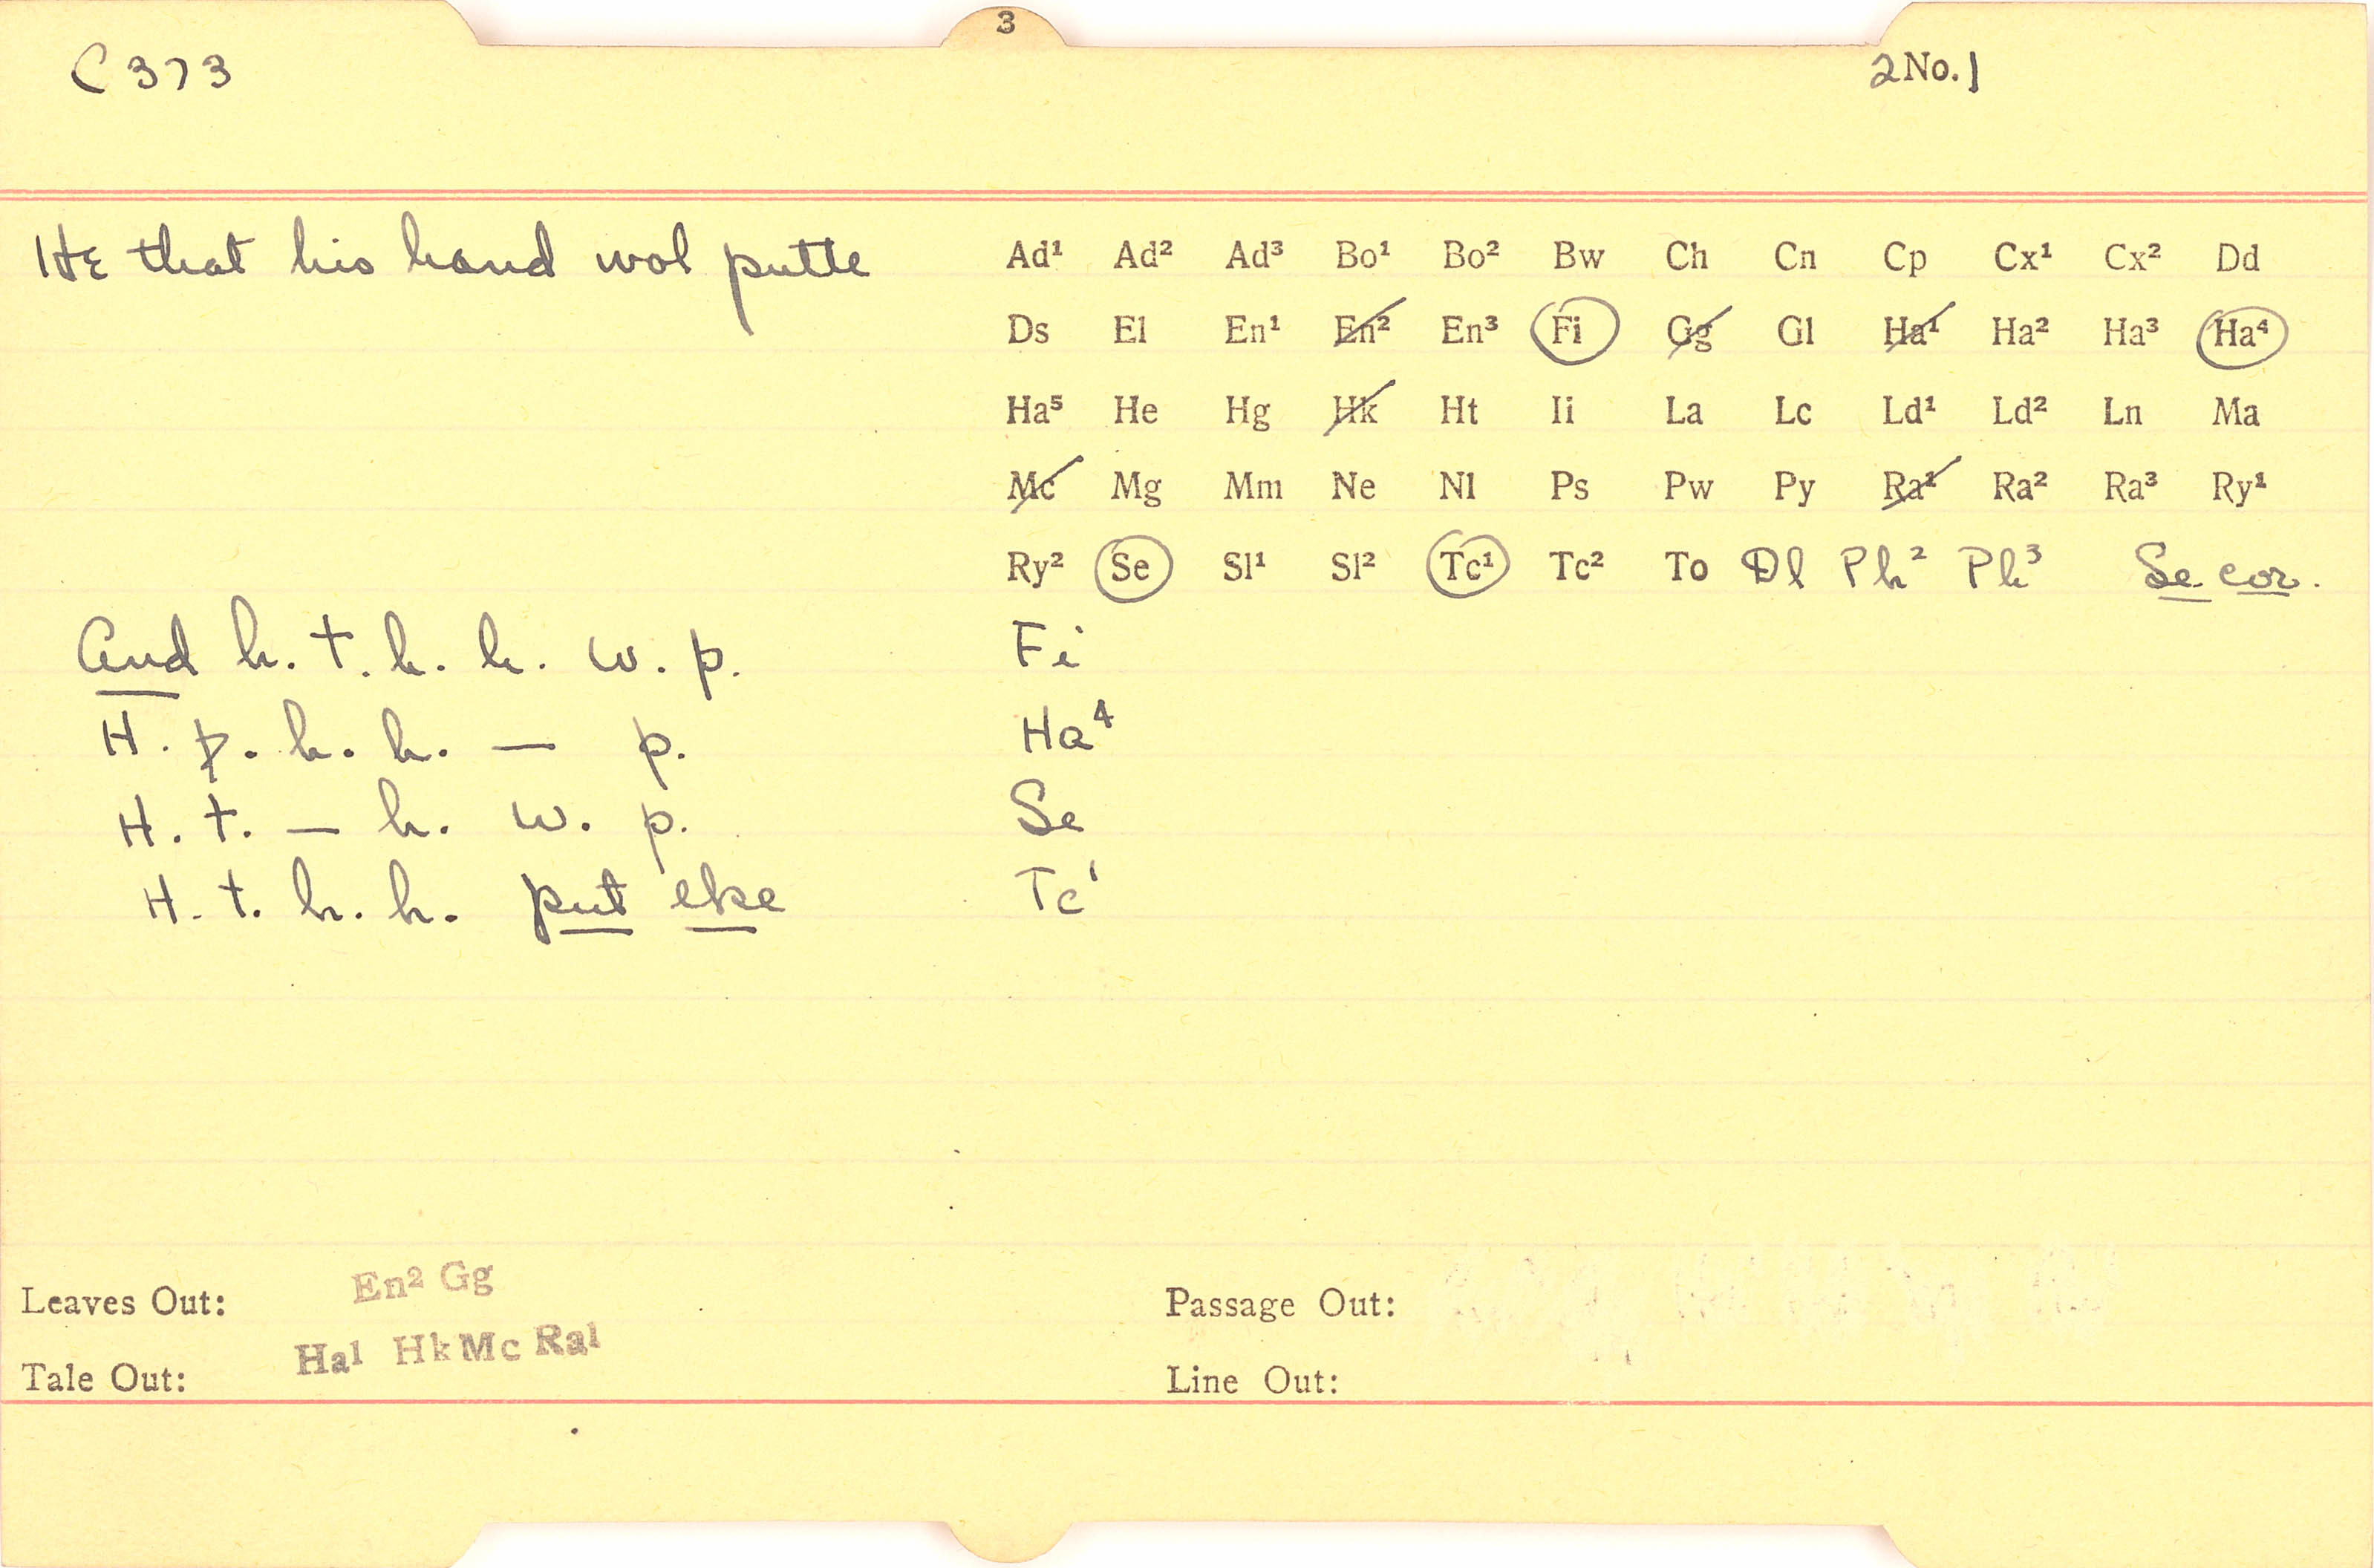 3
C 373
2No.1
He that his hand wol putte
Ad¹ Ad² Ad³ Bo¹ Bo² Bw Ch Cn Cp Cx¹ Cx² Dd
Ds El En¹ En² En³ Fi Gg Gl Ha¹ Ha² Ha³ Ha⁴
Ha⁵ He Hg Hk Ht Ii La Lc Ld¹ Ld² Ln Ma
Mc Mg Mm Ne Nl Ps Pw Py Ra¹ Ra² Ra³ Ry¹
Ry² Se Sl¹ Sl² Tc¹ Tc² To Dl Ph² Ph³ Se cor.
And h. t. h. h. w. p. Fi
H. þ. h. h. — p. Ha⁴
H. t. — h. w. p. Se
H. t. h. h. put eke Tc¹
Leaves Out: En² Gg
Passage Out:
Tale Out: Ha¹ Hk Mc Ra¹
Line Out: